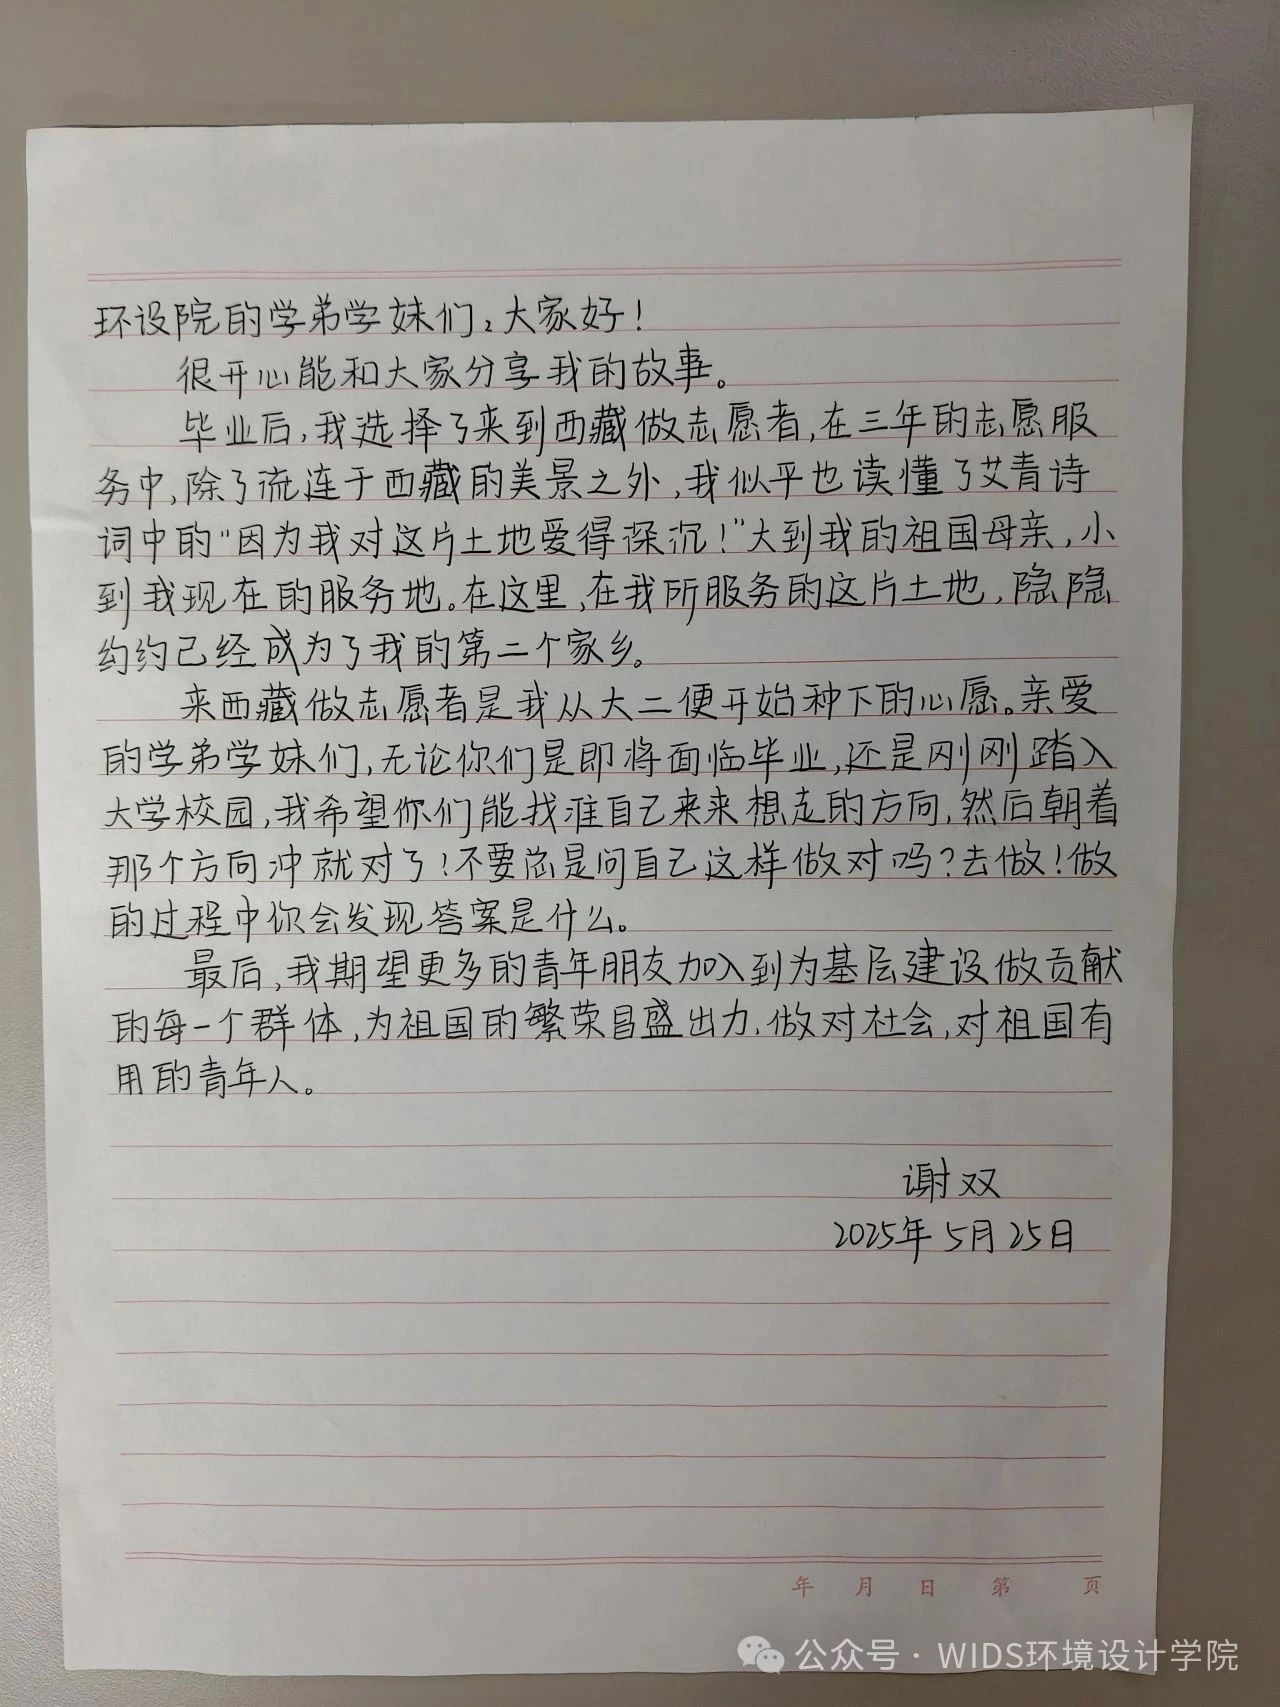 环设院的学弟学妹们，大家好！
很开心能和大家分享我的故事。
毕业后，我选择了来到西藏做志愿者，在三年的志愿服
务中，除了流连于西藏的美景之外，我似乎也读懂了艾青诗
词中的“因为我对这片土地爱得深沉！”大到我的祖国母亲，小
到我现在的服务地。在这里，在我所服务的这片土地，隐隐
约约已经成为了我的第二个家乡。
来西藏做志愿者是我从大二便开始种下的心愿。亲爱
的学弟学妹们，无论你们是即将面临毕业，还是刚刚踏入
大学校园，我希望你们能找准自己未来想走的方向，然后朝着
那个方向冲就对了！不要总是问自己这样做对吗？去做！做
的过程中你会发现答案是什么。
最后，我期望更多的青年朋友加入到为基层建设做贡献
的每一个群体，为祖国的繁荣昌盛出力，做对社会，对祖国有
用的青年人。
谢双
2025年5月25日
年 月 日 第 页
公众号·WIDS环境设计学院